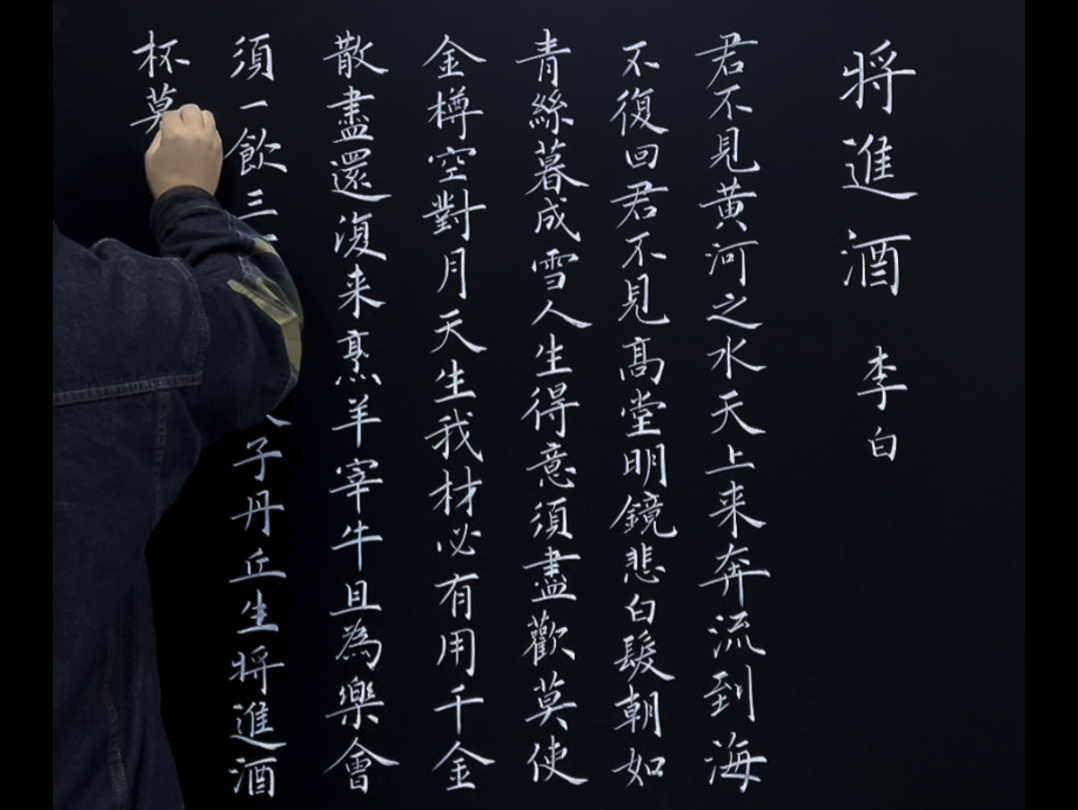 將進酒 李白
君不見黃河之水天上来奔流到海
不復回君不見高堂明鏡悲白髮朝如
青絲暮成雪人生得意須盡歡莫使
金樽空對月天生我材必有用千金
散盡還復来烹羊宰牛且為樂會
須一飲三子丹丘生將進酒
杯莫